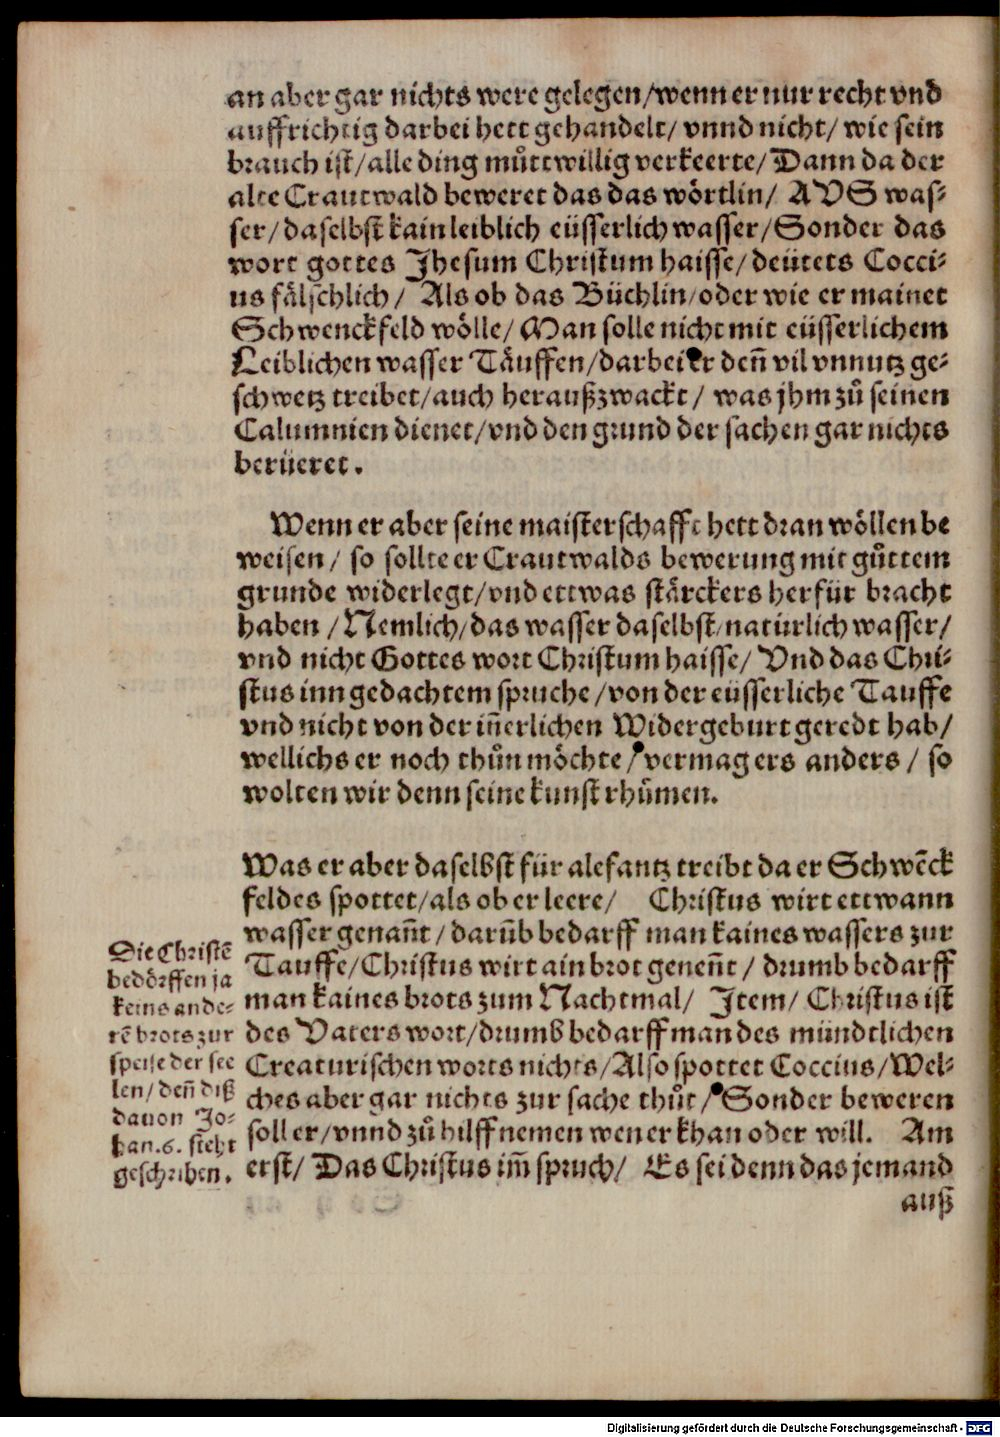 an aber gar nichts were gelegen/wenn er nur recht vnd
auffrichtig darbei hett gehandelt/ vnnd nicht/ wie sein
brauch ist/alle ding můttwillig verkeerte/Dann da der
alte Crautwald beweret das das wörtlin/ AVS was-
ser/daselbst kain leiblich eüsserlich wasser/Sonder das
wort gottes Jhesum Christum haisse/deütets Cocci-
us fälschlich/ Als ob das Büchlin/oder wie er mainet
Schwenckfeld wölle/ Man solle nicht mit eüsserlichem
Leiblichen wasser Täuffen/darbei er deñ vil vnnutz ge-
schwetz treibet/auch heraußzwackt/ was jhm zů seinen
Calumnien dienet/vnd den grund der sachen gar nichts
berüeret.
Wenn er aber seine maisterschafft hett dran wöllen be
weisen/ so sollte er Crautwalds bewerung mit gůttem
grunde widerlegt/vnd ettwas stärckers herfür bracht
haben/Nemlich/das wasser daselbst/natürlich wasser/
vnd nicht Gottes wort Christum haisse/ Vnd das Chri-
stus inn gedachtem spruche/von der eüsserliche Tauffe
vnd nicht von der iñerlichen Widergeburt geredt hab/
wellichs er noch thůn möchte/ vermag ers anders/ so
wolten wir denn seine kunst rhůmen.
Was er aber daselbst für alefantz treibt da er Schwẽck
feldes spottet/als ob er leere/ Christus wirt ettwann
wasser genañt/darũb bedarff man kaines wassers zur
Tauffe/Christus wirt ain brot geneñt/ drumb bedarff
man kaines brots zum Nachtmal/ Jtem/ Christus ist
des Vaters wort/drumb bedarff man des mündtlichen
Creaturischen worts nichts/Also spottet Coccius/Wel-
ches aber gar nichts zur sache thůt/ Sonder beweren
soll er/vnnd zů hilff nemen wen er khan oder will. Am
erst/ Das Christus im̃ spruch/ Es sei denn das jemand
auß
Die Christẽ
bedörffen ja
keins ande-
rẽ brots zur
speise der see
len/deñ diß
dauon Jo-
han.6. steht
geschriben.
Digitalisierung gefördert durch die Deutsche Forschungsgemeinschaft - DFG